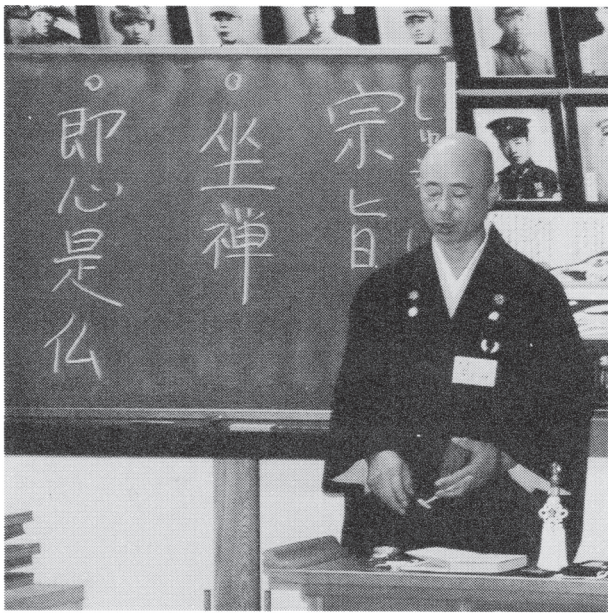 宗旨
○坐禅
○即心是仏